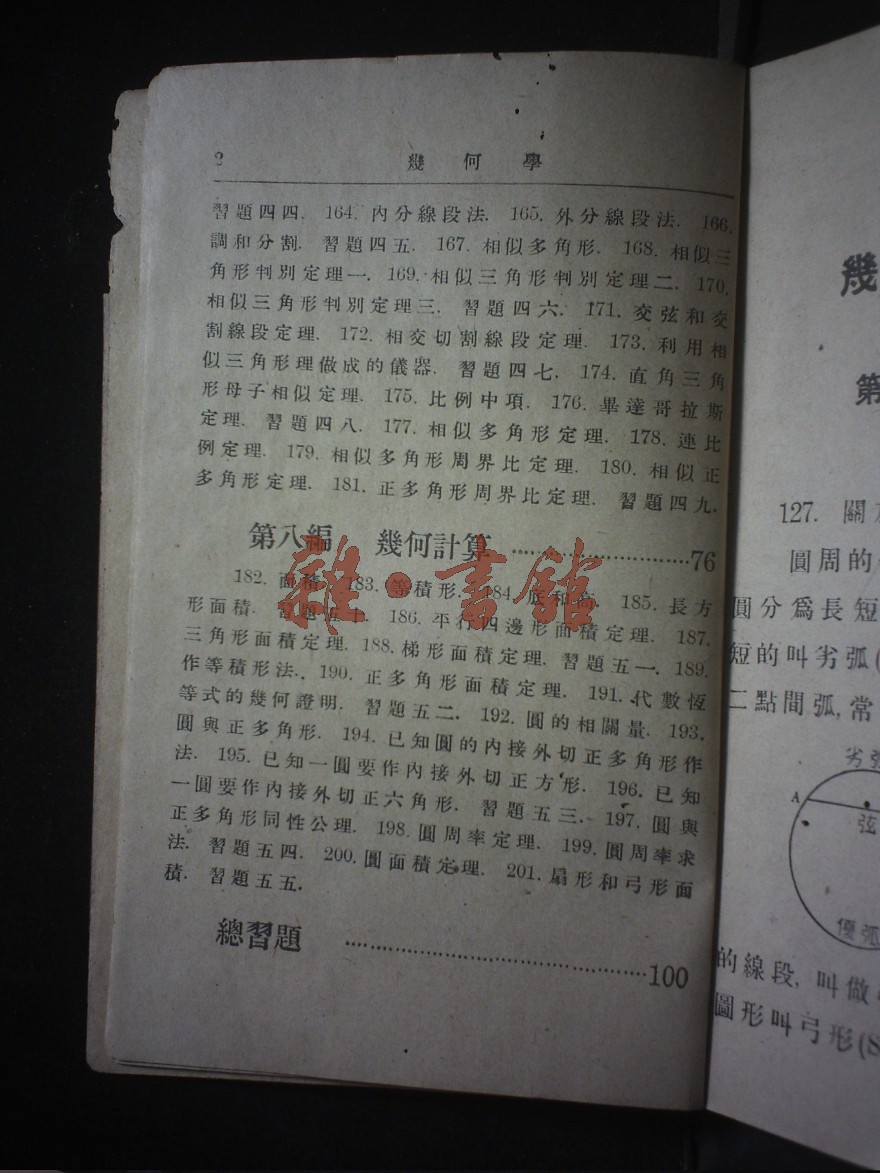 2 幾何學
習題四四. 164. 內分線段法. 165. 外分線段法. 166.
調和分割. 習題四五. 167. 相似多角形. 168. 相似三
角形判別定理一. 169. 相似三角形判別定理二. 170.
相似三角形判別定理三. 習題四六. 171. 交弦和交
割線段定理. 172. 相交切割線段定理. 173. 利用相
似三角形理做成的儀器. 習題四七. 174. 直角三角
形母子相似定理. 175. 比例中項. 176. 畢達哥拉斯
定理. 習題四八. 177. 相似多角形定理. 178. 連比
例定理. 179. 相似多角形周界比定理. 180. 相似正
多角形定理. 181. 正多角形周界比定理. 習題四九.
第八編 幾何計算 ……………………76
182. 面積. 183. 等積形. 184. 底和高. 185. 長方
形面積. 習題五十. 186. 平行四邊形面積定理. 187.
三角形面積定理. 188. 梯形面積定理. 習題五一. 189.
作等積形法. 190. 正多角形面積定理. 191. 代數恆
等式的幾何證明. 習題五二. 192. 圓的相關量. 193.
圓與正多角形. 194. 已知圓的內接外切正多角形作
法. 195. 已知一圓要作內接外切正方形. 196. 已知
一圓要作內接外切正六角形. 習題五三. 197. 圓與
正多角形同性公理. 198. 圓周率定理. 199. 圓周率求
法. 習題五四. 200. 圓面積定理. 201. 扇形和弓形面
積. 習題五五.
總習題 ……………………………………100
雜·書館
幾
第
127. 關
圓周的
圓分爲長短
短的叫劣弧(
二點間弧,常
劣弧
A
弦
優弧
的線段, 叫做
圖形叫弓形(S